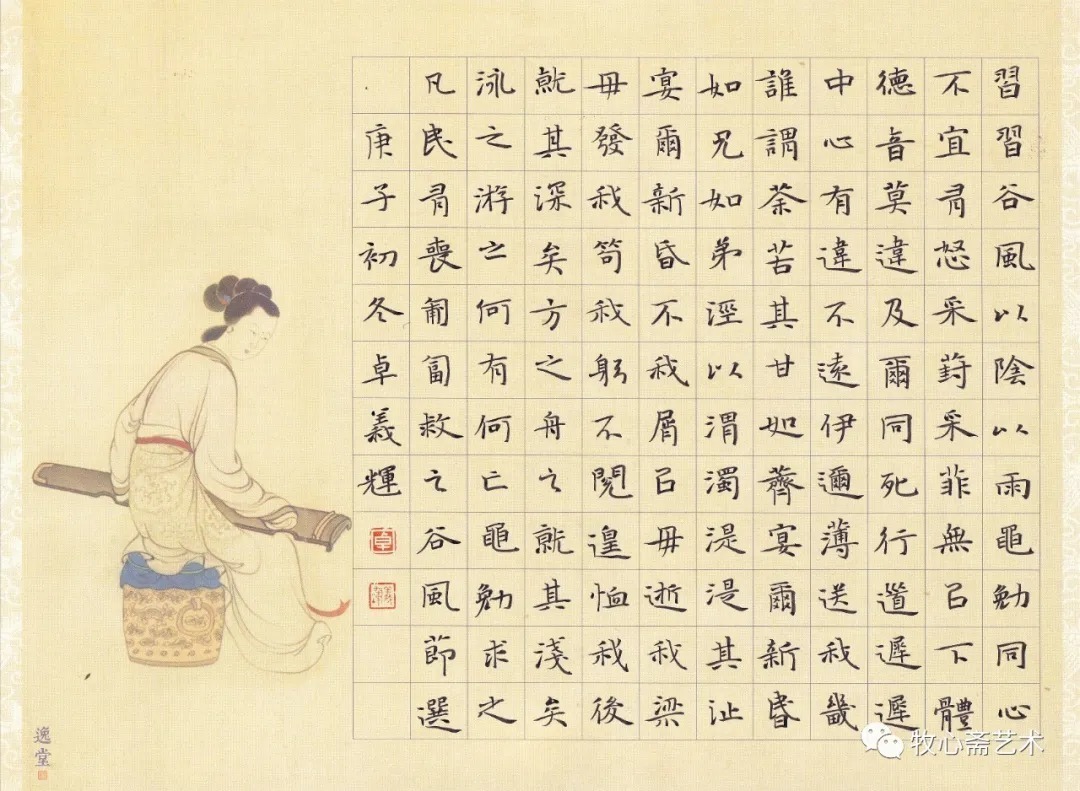 習習谷風以陰以雨黽勉同心
不宜有怒采葑采菲無以下體
德音莫違及爾同死行道遲遲
中心有違不遠伊邇薄送我畿
誰謂荼苦其甘如薺宴爾新昏
如兄如弟涇以渭濁湜湜其沚
宴爾新昏不我屑以毋逝我梁
毋發我笱我躬不閱遑恤我後
就其深矣方之舟之就其淺矣
泳之游之何有何亡黽勉求之
凡民有喪匍匐救之谷風節選
庚子初冬卓義輝
卓
義輝
逸堂
牧心斋艺术